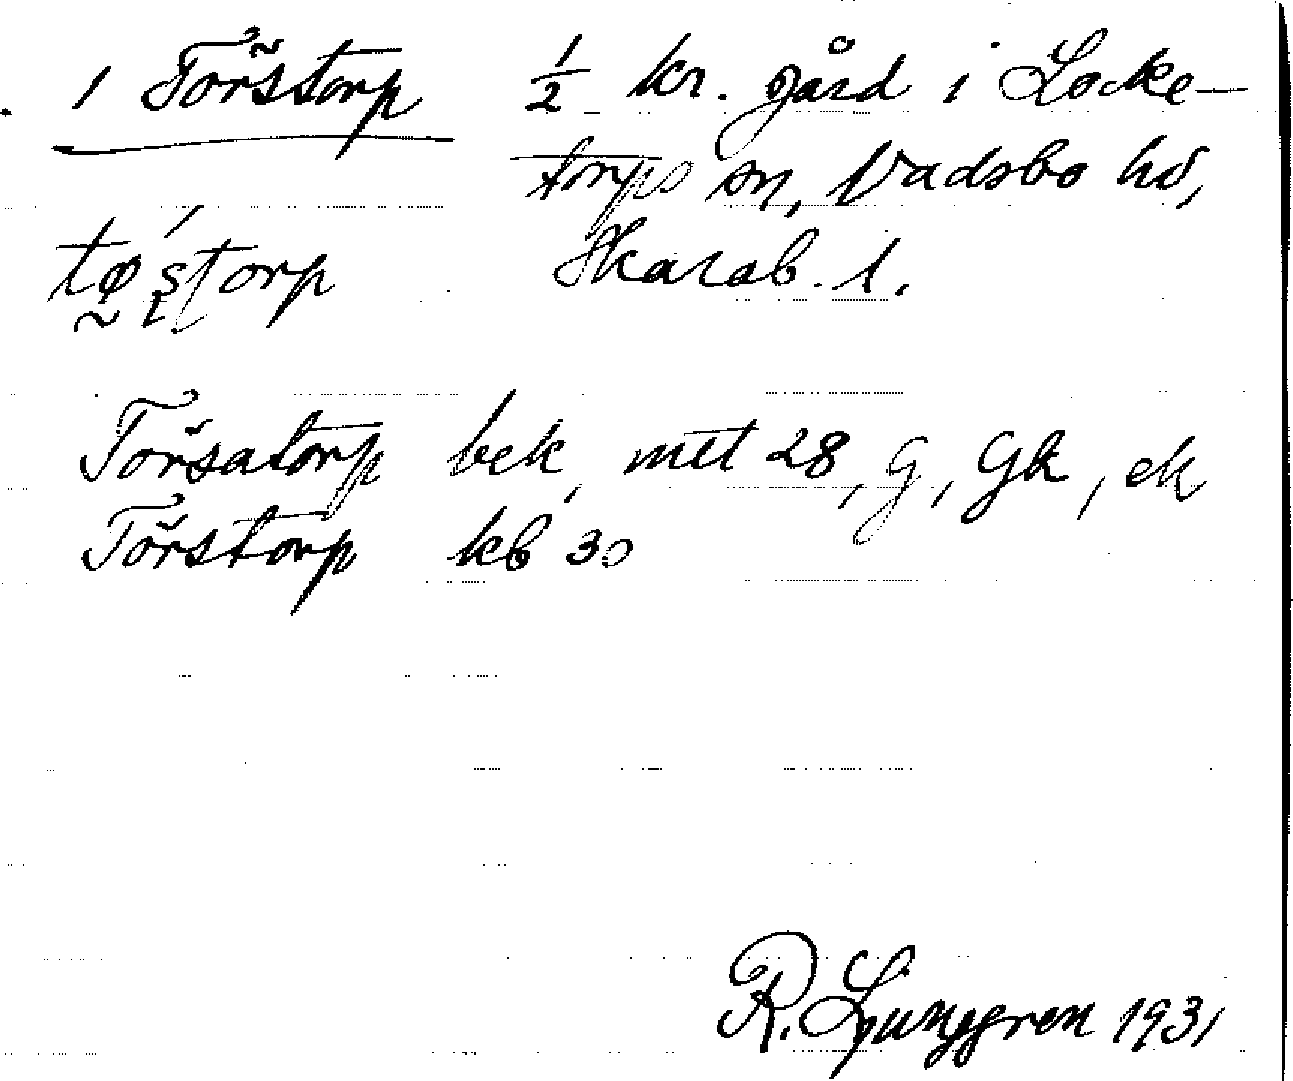 1 Törstorp ½ kr. gård i Locke-
torps sn, Vadsbo hd,
tø´storp Skarab. l.
Törsatorp bek, mtl 28, G, Gk, ek
Törstorp kb 30
R. Ljunggren 1931